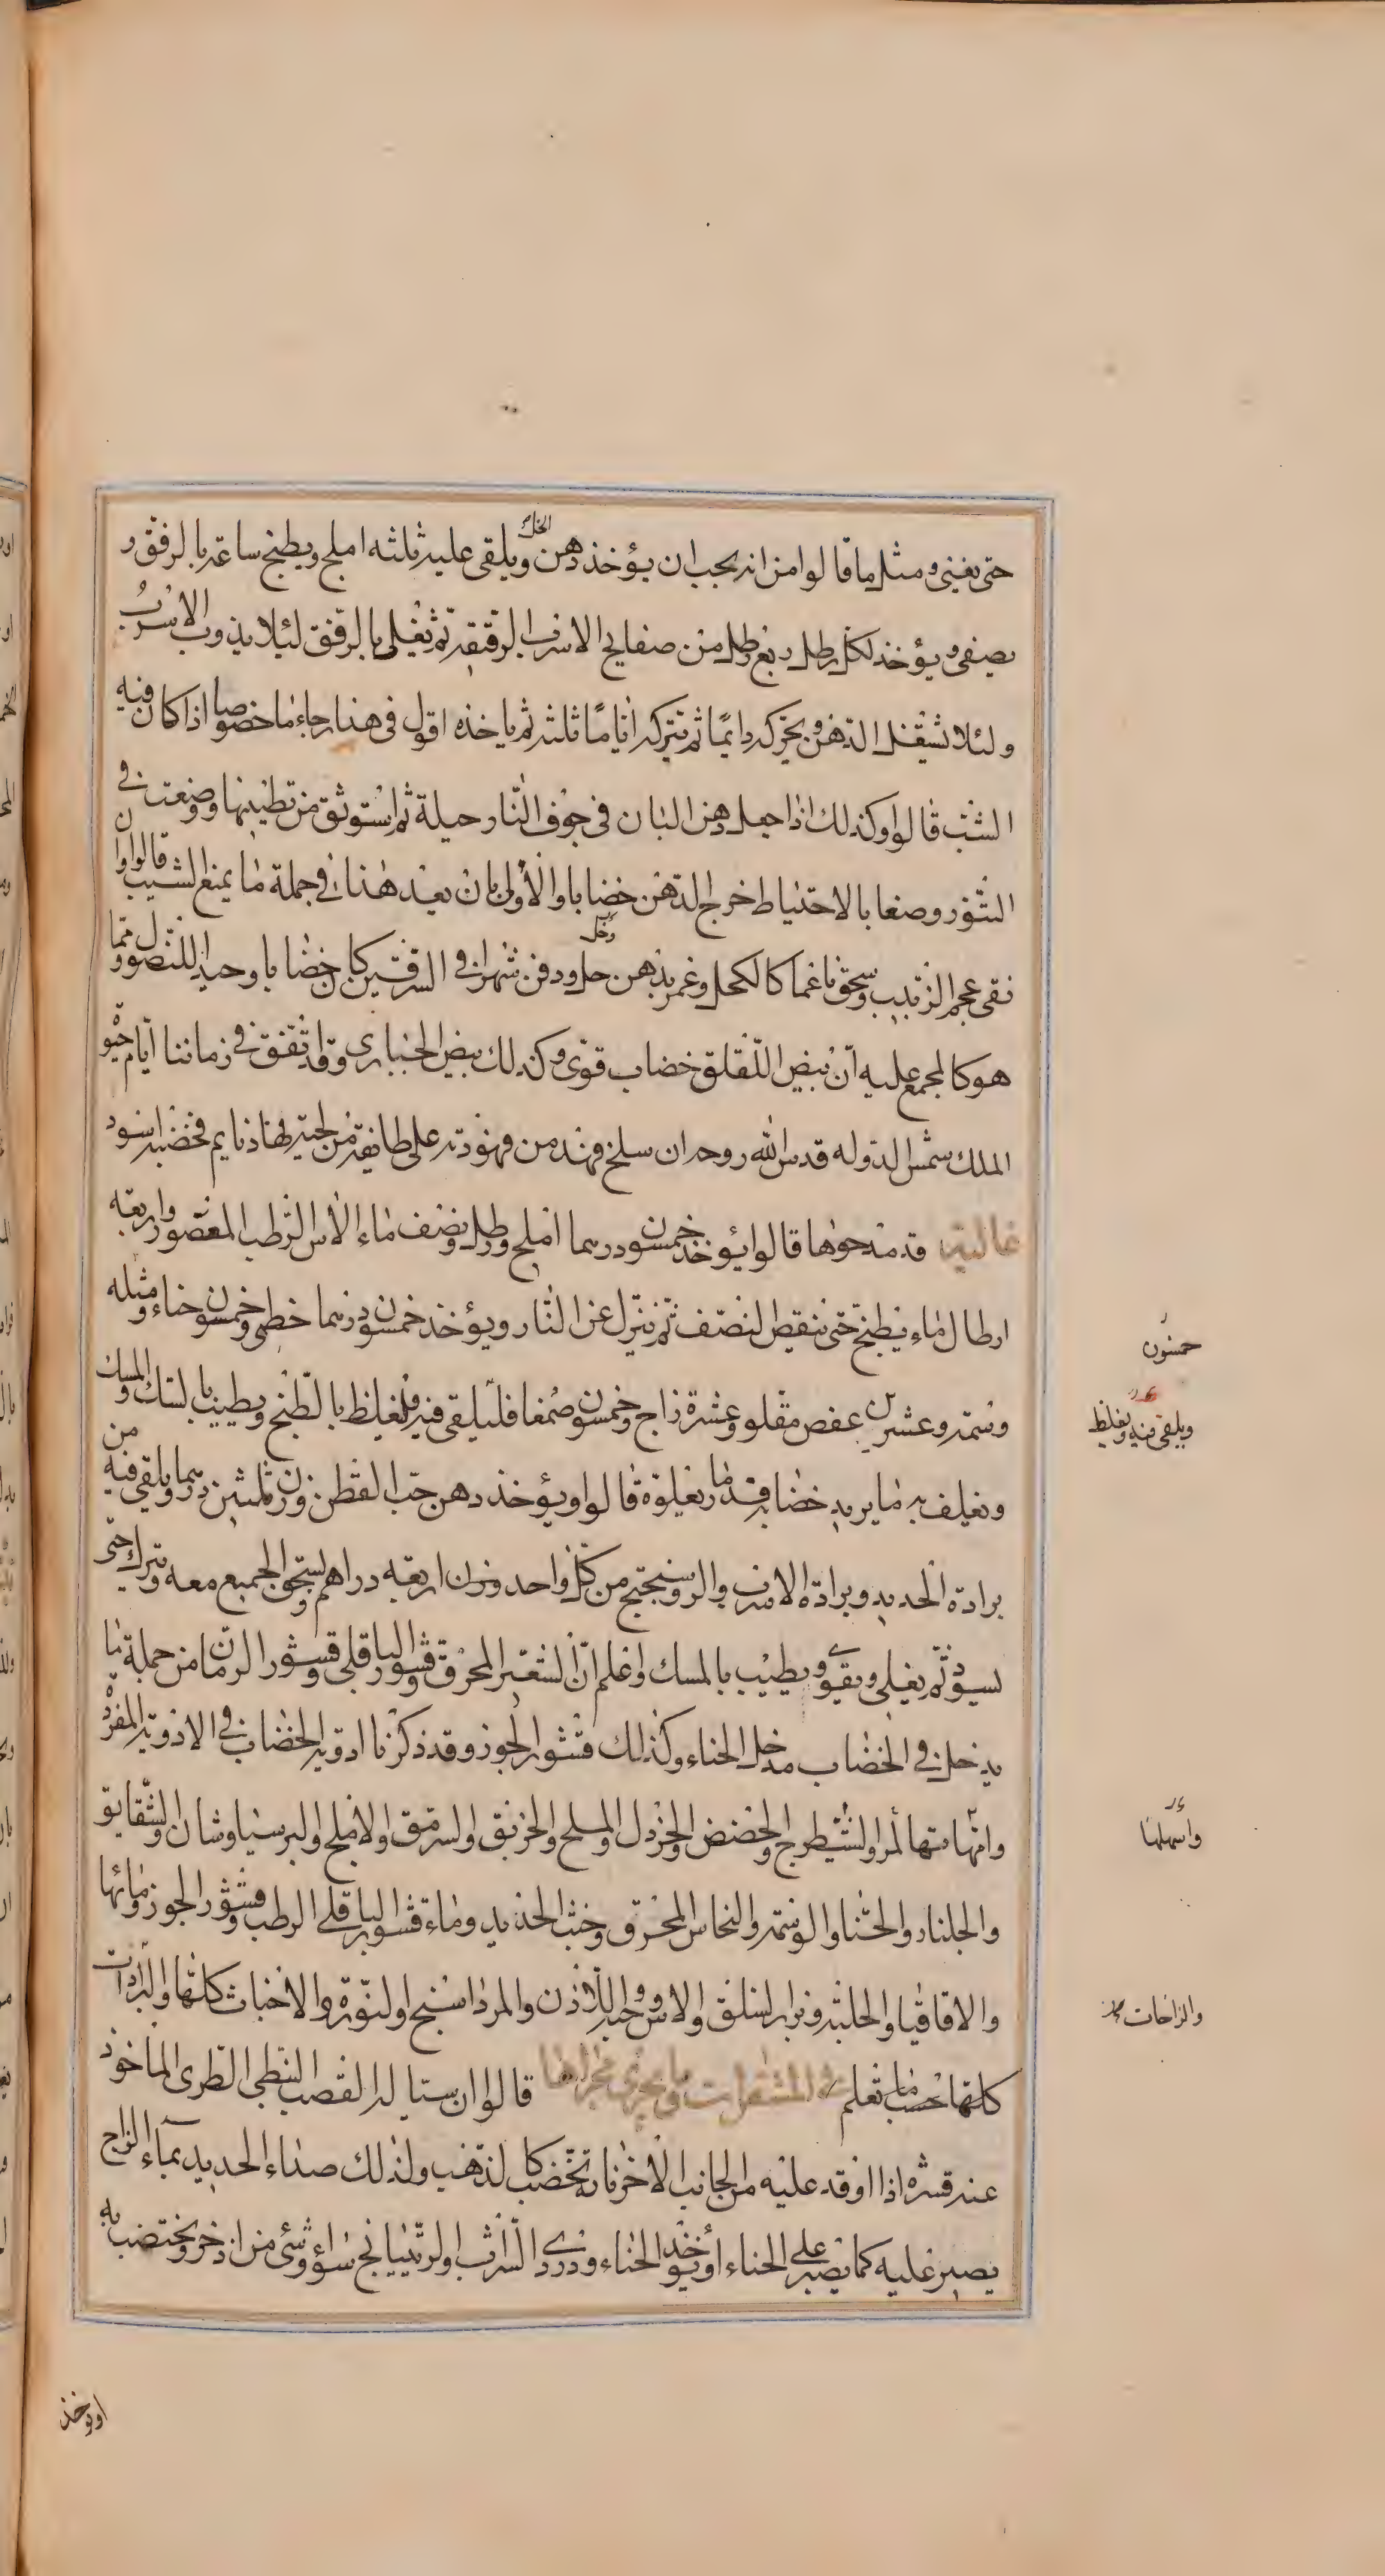 حتى يغنى ومثل ما قالوا من انه يجب ان يؤخذ دهن الخل ويلقى عليه ثلثه املج ويطبخ ساعة بالرفق و
يصفى ويؤخذ لكل رطل ربع رطل من صفايح الاسرب الرقيقة ثم تغلى بالرفق لئلا يذوب الاسرب
ولئلا تشتعل الدهن ويحركه دايمًا ثم تتركه ايامًا ثلثة ثم ياخذه اقول فى هذا رجاء ما خصوصا اذا كان فيه
الشب قالوا وكذلك اذا جعل دهن البان فى جوف النار حيلة ثم استوثق من تطيينها وضعت فى
التنور وصفا بالاحتياط خرج الدهن خضابا والاولى بان يعد هذا فى جملة ما يمنع الشيب قالوا وان
نقى عجم الزبيب وسحق ناعما كالكحل وغمر بدهن حل ودفن شهرا فى السرقين كان خضابا وحيدا للنصول ومما
هو كالمجمع عليه ان بيض اللقلق خضاب قوى وكذلك بيض الحبارى وقد اتفق فى زماننا ايام حيوة
الملك شمس الدوله قدس الله روحه ان سلخ فهد من فهودته على طايفة من لحيته فهاذ نايم فخضبه اسود
غالية قد مدحوها قالوا يؤخذ خمسون درهما املج ورطل ونصف ماء الاس الرطب المعصور واربعة
ارطال ماء يطبخ حتى ينقص النصف ثم ينزل عن النار ويؤخذ خمسون درهما خطمى وخمسون حناء ومثله
وسمة وعشرين عفص مقلو وعشرة زاج وخمسون صمغا فليلقى فيه فليغلظ بالطبخ ويطيب بالسك والمسك
ويغلف به ما يريد خضابه قد مار بغلوة قالوا ويؤخذ دهن حب القطن وزن ثلثين درهما ويلقى فيه من
برادة الحديد وبرادة الاسرب والروسختج من كل واحد وزن اربعة دراهم يسحق الجميع معه ويترك حتى
يسود ثم يغلى ويقوى ويطيب بالمسك واعلم ان الشعير المحرق وقشور الباقلى وقشور الرمان من جملة ما
يدخل فى الخضاب مدخل الحناء وكذلك قشور الجوز وقد ذكرنا ادوية الخضاب فى الادوية المفردة
وامهاتها المر والشيطرج والحضض والخردل والملح والخربق والسرمق والاملج والبرسياوشان والشقايق
والجلنار والحنا والوسمة والنحاس المحرق وخبث الحديد وماء قشور الباقلى الرطب وقشور الجوز ومائها
والاقاقيا والحلبة وبزر السلق والاس وحبه واللاذن والمرداسنج والنورة والاخباث كلها والبرادات
كلها بحسب ما تعلم فى المشقرات وما يجرى مجراها قالوا ان ستا له القصب النبطى الطرى الماخوذ
عنه قشره اذا اوقد عليه من الجانب الاخر فانه تخضب كالذهب ولذلك صداء الحديد بماء الزاج
يصبر عليه كما يصبر على الحناء او يؤخذ الحناء ودردى الشراب والرتيانج سواء وشى من اذخر ويختضب به
خمسون
ويلقى فيه ويغلظ
واسهلها
والزاجات
او يؤخذ